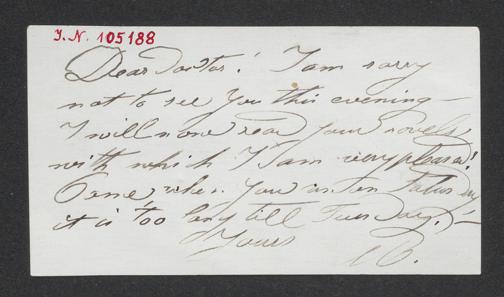 J.N. 105188
Dear Doctor! I am sorry
not to see you this evening –
I will now read your novels,
with which I am very pleased!
Come, when you are in
it is too long till Tuesday! –
Yours
B.